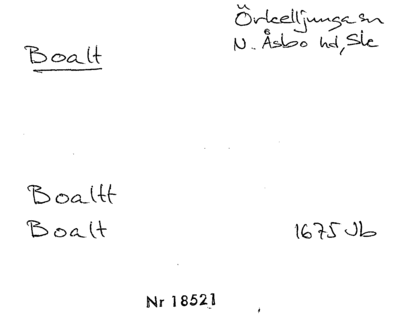 Boalt
Örkelljunga sn
N. Åsbo hd, Sk
Boaltt
Boalt 1675 Jb
Nr 18521